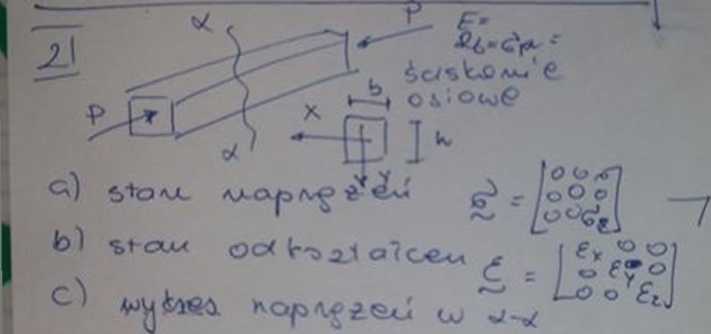 2)
α
P
E=
ściskanie
osiowe
b
P
x
h
α
y
a) stan naprężeń σ = [0 0 0
0 0 0
0 0 σz]
b) stan odkształceń ε = [εx 0 0
0 εy 0
0 0 εz]
c) wykres naprężeń w α-α